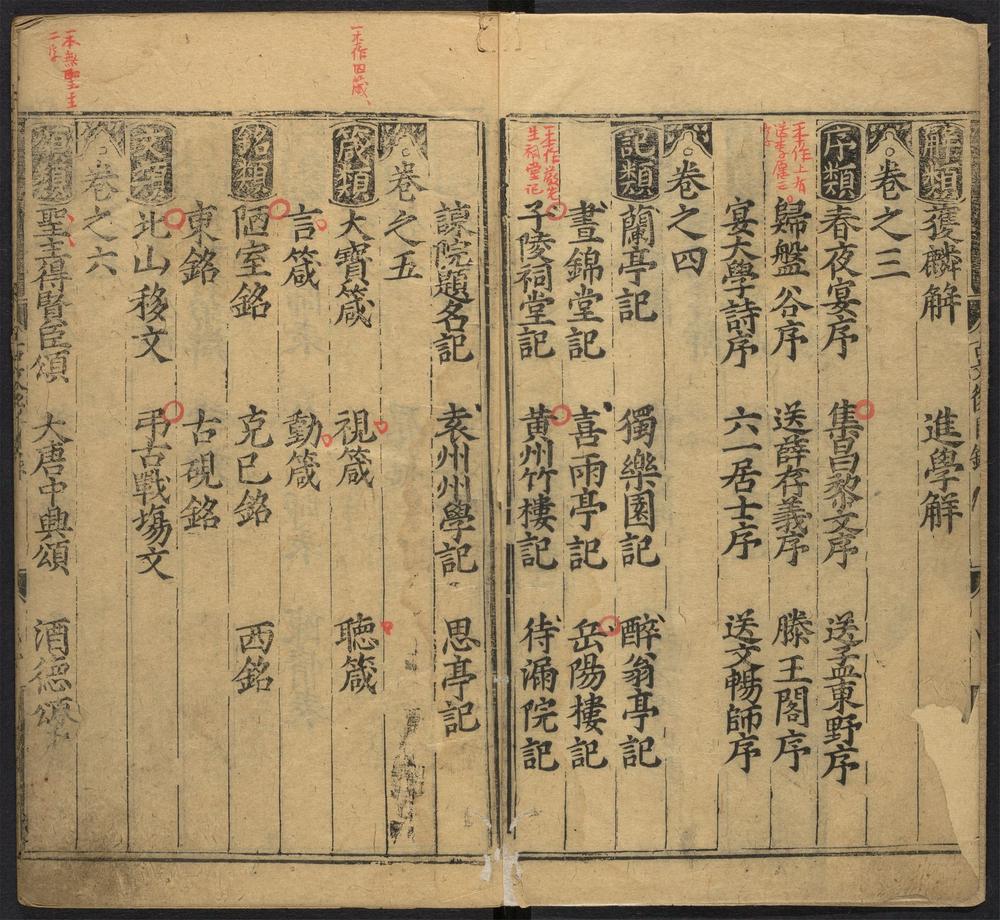 解類 獲麟解 進學解
卷之三
序類 春夜宴序 集昌黎文序 送孟東野序
歸盤谷序 送薛存義序 滕王閣序
宴大學詩序 六一居士序 送文暢師序
卷之四
記類 蘭亭記 獨樂園記 醉翁亭記
晝錦堂記 喜雨亭記 岳陽樓記
子陵祠堂記 黃州竹樓記 待漏院記
一本作嚴先
生祠堂記
諫院題名記 袁州州學記 思亭記
卷之五
箴類 大寶箴 視箴 聴箴
一本作四箴
言箴 動箴
銘類 陋室銘 克己銘 西銘
東銘 古硯銘
文類 北山移文 弔古戰塲文
卷之六
頌類 聖主得賢臣頌 大唐中興頌 酒德頌
一本無聖主
二字